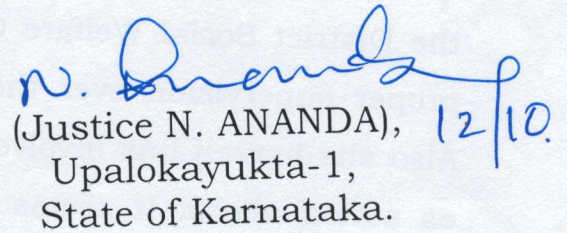 N. Ananda
(Justice N. ANANDA), 12/10.
Upalokayukta-1,
State of Karnataka.